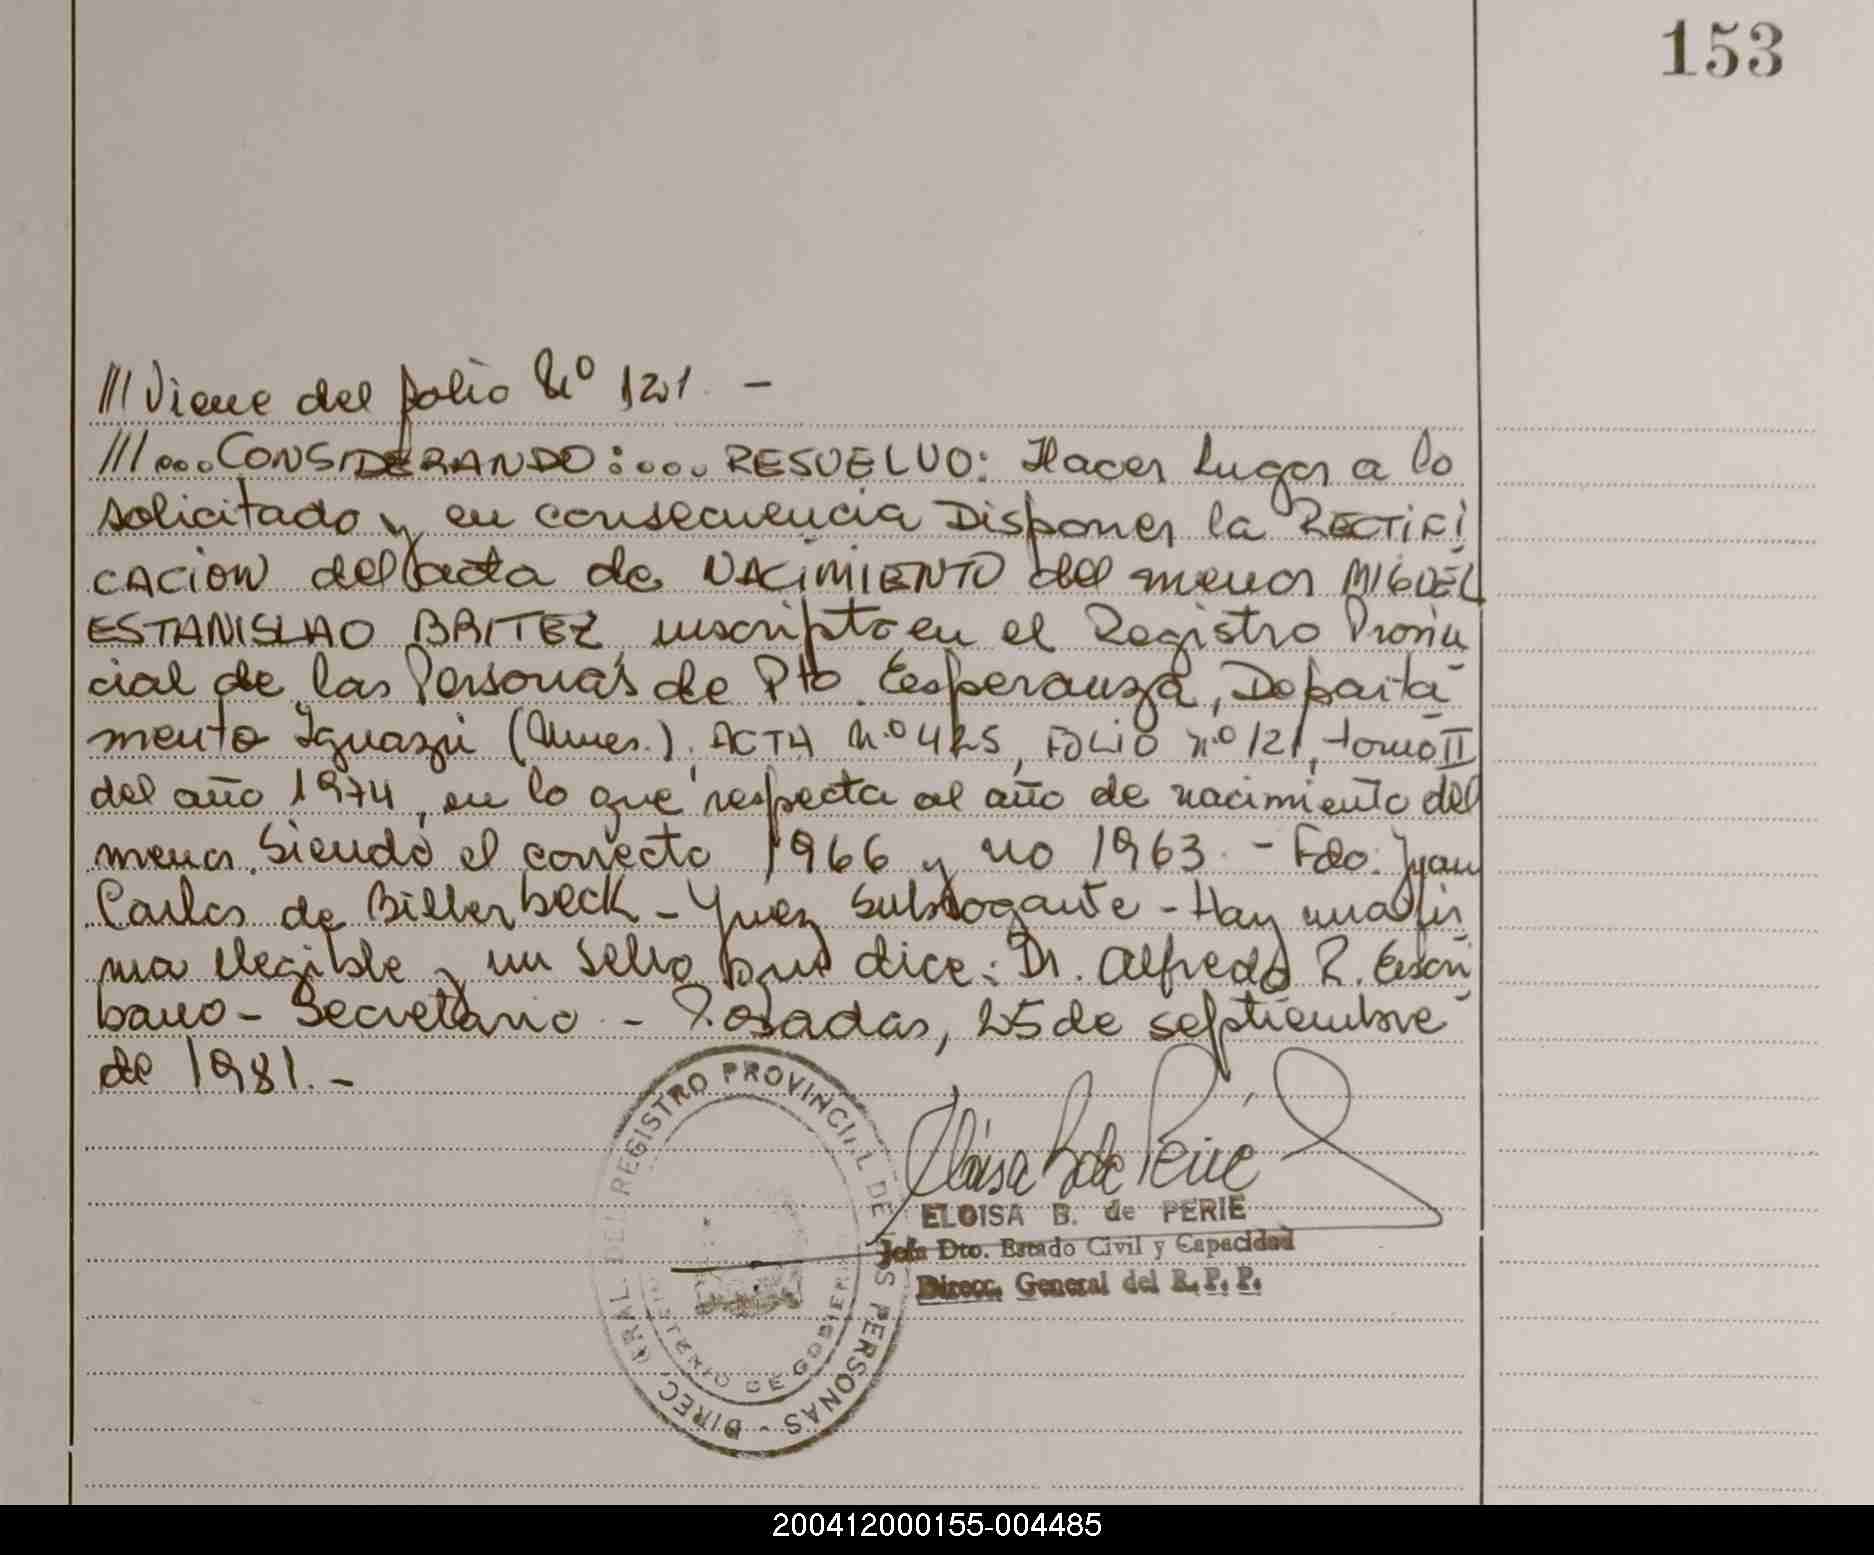 153
/// Viene del folio Nº 121. -
///...CONSIDERANDO:.... RESUELVO: Hacer lugar a lo
solicitado y en consecuencia Disponer la RECTIFI
CACION del acta de NACIMIENTO del menor MIGUEL
ESTANISLAO BRITEZ, inscripto en el Registro Provin
cial de las Personas de Pto. Esperanza, Departa
mento Iguazú (Mnes.). ACTA n.º 425, FOLIO nº 121, tomo II
del año 1974, en lo que respecta al año de nacimiento del
menor. Siendo el correcto 1966 y no 1963. - Fdo: Juan
Carlos de Billerbeck - Juez Subrogante - Hay una fir
ma ilegible y un sello que dice: Dr. Alfredo R. Escri
bano - Secretario. - Posadas, 25 de septiembre
de 1981. -
DIREC. GRAL. DEL REGISTRO PROVINCIAL DE LAS PERSONAS -
MINISTERIO DE GOBIERNO
Eloisa B de Perié
ELOISA B. de PERIE
Jefa Dto. Estado Civil y Capacidad
Direcc. General del R. P. P.
200412000155-004485